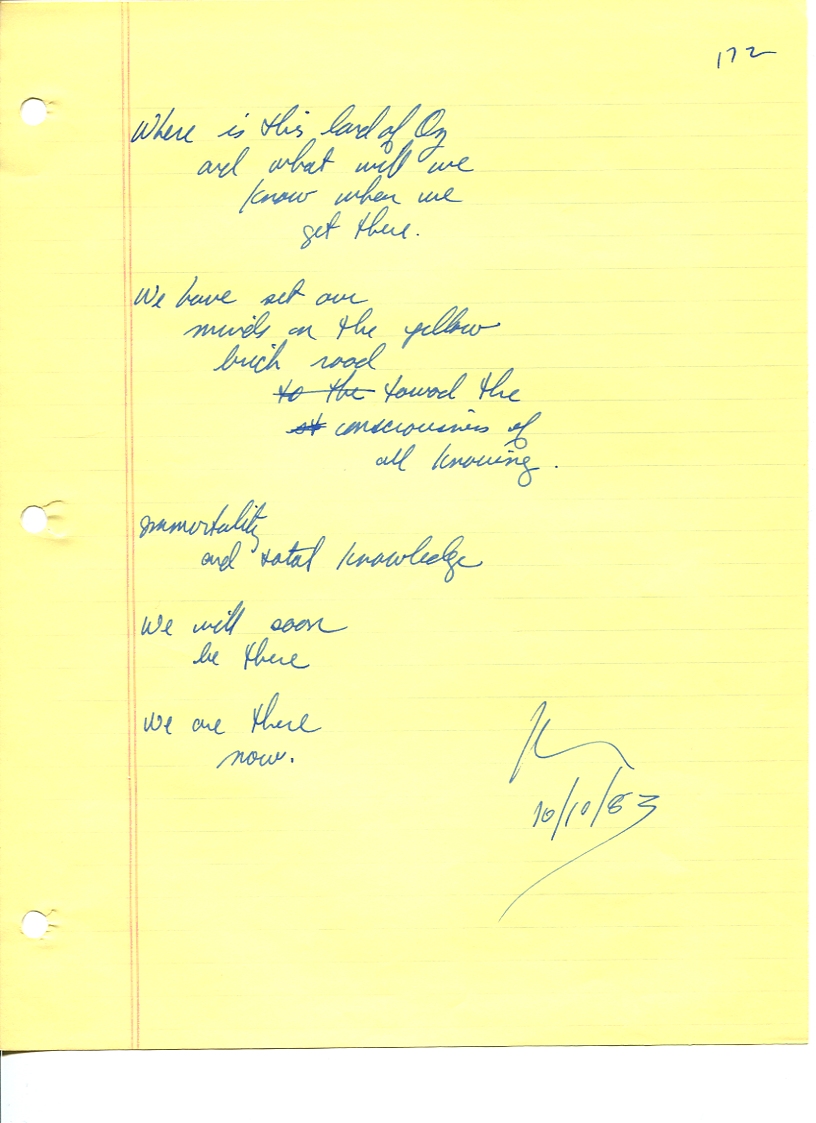 172
Where is this land of Oz
and what will we
know when we
get there.
We have set our
minds on the yellow
brick road
to the toward the
st consciousness of
all knowing.
Immortality
and total knowledge
We will soon
be there
We are there
now.
10/10/83